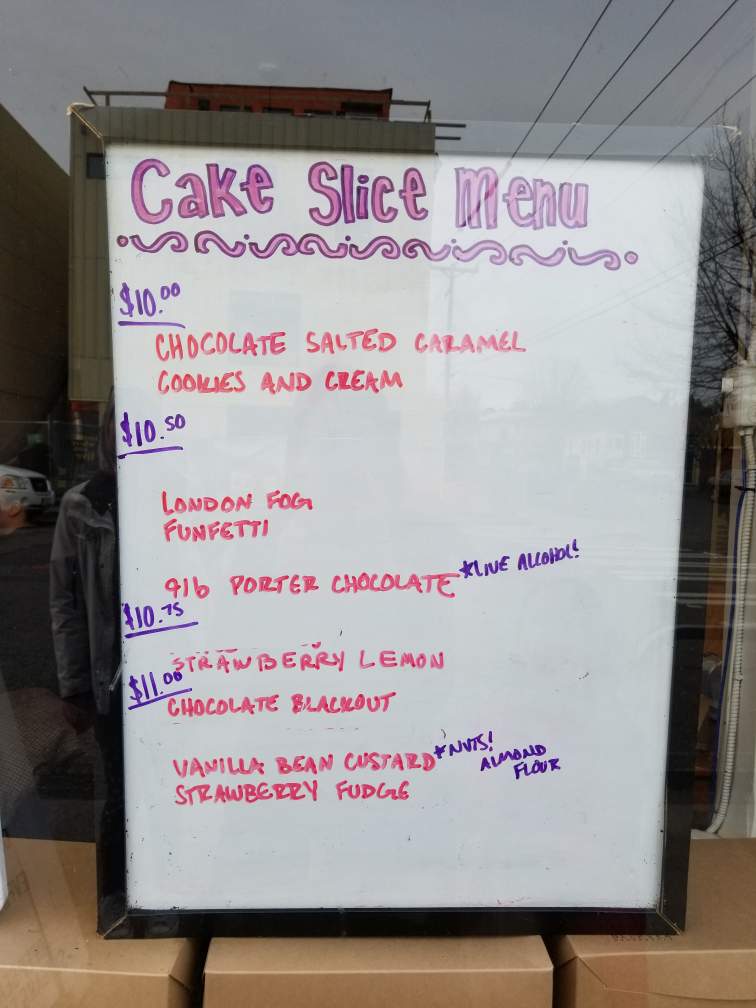 Cake Slice Menu
$10.00
CHOCOLATE SALTED CARAMEL
COOKIES AND CREAM
$10.50
LONDON FOG
FUNFETTI
916 PORTER CHOCOLATE *LIVE ALCOHOL!
$10.75
STRAWBERRY LEMON
$11.00
CHOCOLATE BLACKOUT
VANILLA BEAN CUSTARD *NUTS!
ALMOND
FLOUR
STRAWBERRY FUDGE